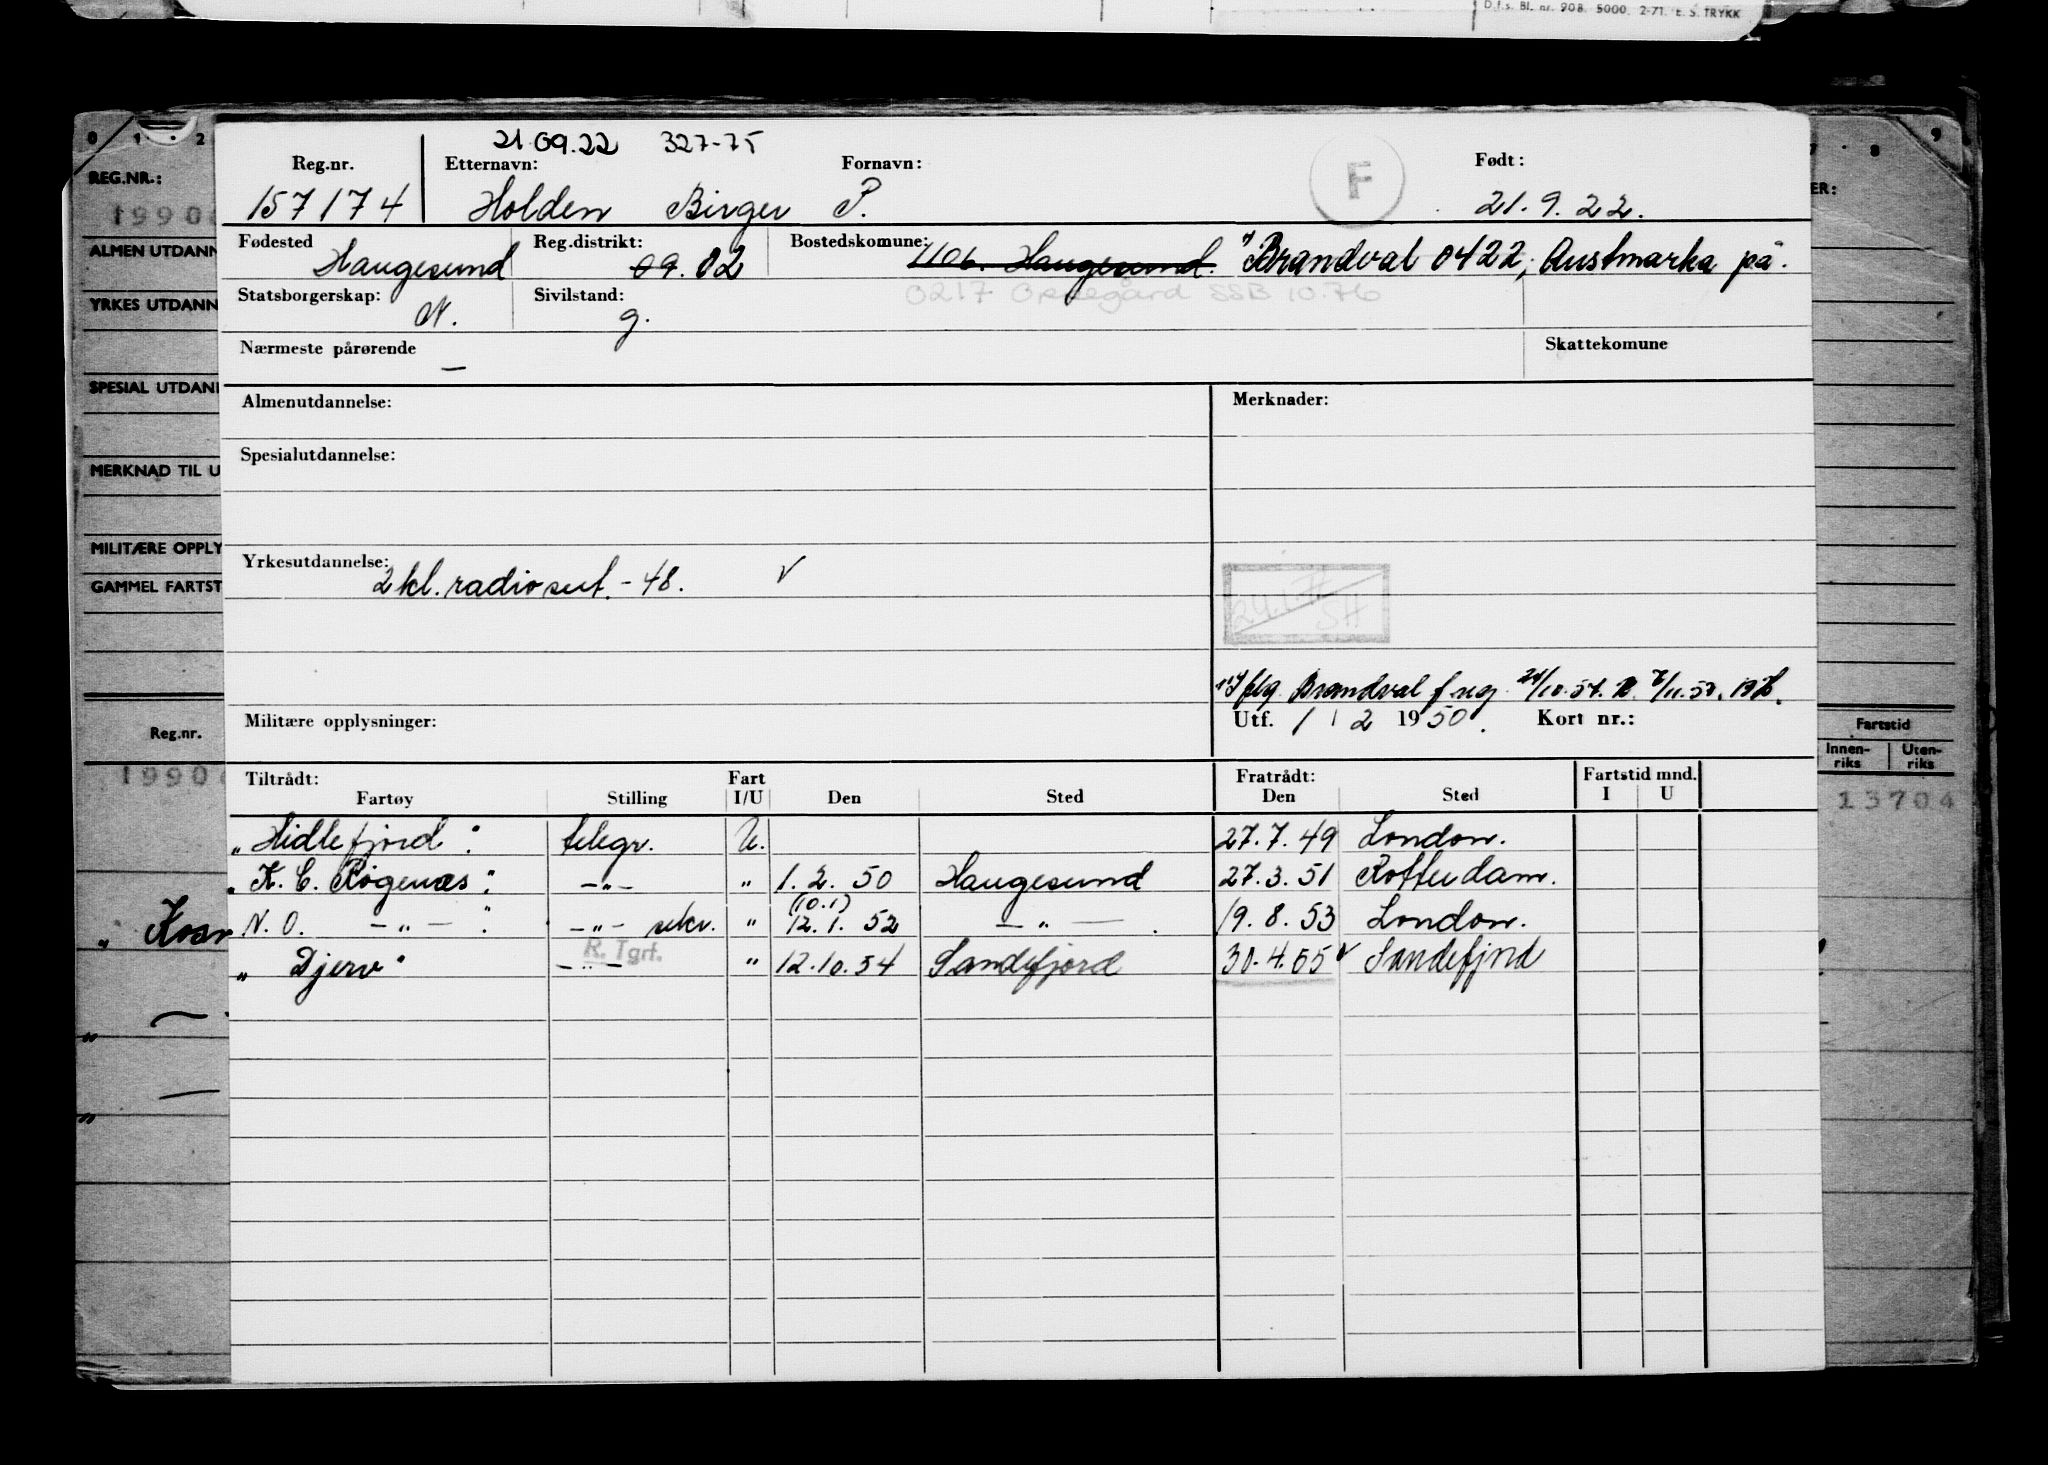 D.f.s. Bl. nr. 908. 5000. 2-71. E. S. TRYKK
0 1 2
9
8
REG.NR.:
19906
ALMEN UTDANN
YRKES UTDANN
SPESIAL UTDAN
MERKNAD TIL U
MILITÆRE OPPLY
GAMMEL FARTST
Reg.nr.
19906
ER:
Fartstid
Innen-riks Uten-riks
13704
21.09.22 327-75
Reg.nr. Etternavn: Fornavn: F Født:
157174 Holden Birger P. 21.9.22.
Fødested Reg.distrikt: Bostedskomune:
Haugesund 09. 02 1106. Haugesund. Brandval 0422, Austmarka på.
Statsborgerskap: Sivilstand: 0217 Oppegård SSB 10.76
N. g.
Nærmeste pårørende — Skattekomune
Almenutdannelse: Merknader:
Spesialutdannelse:
Yrkesutdannelse:
2 kl. radiosert. - 48. V
SH
flg. Brandval f reg
Militære opplysninger: Utf. 1 / 2 1950. Kort nr.:
Tiltrådt: Fart Fratrådt: Fartstid mnd.
Fartøy Stilling I/U Den Sted Den Sted I U
"Hidlefjord": telegr. U. 27.7.49 London.
"K. C. Rogenæs": —"— " 1.2.50 Haugesund 27.3.51 Rotterdam.
(10.1)
N. O. —"— " —"— sekr. " 12.1.52 —"— . 19.8.53 London.
R. Tgrf.
"Djerv" —"— " 12.10.54 Sandefjord 30.4.65 V Sandefjord